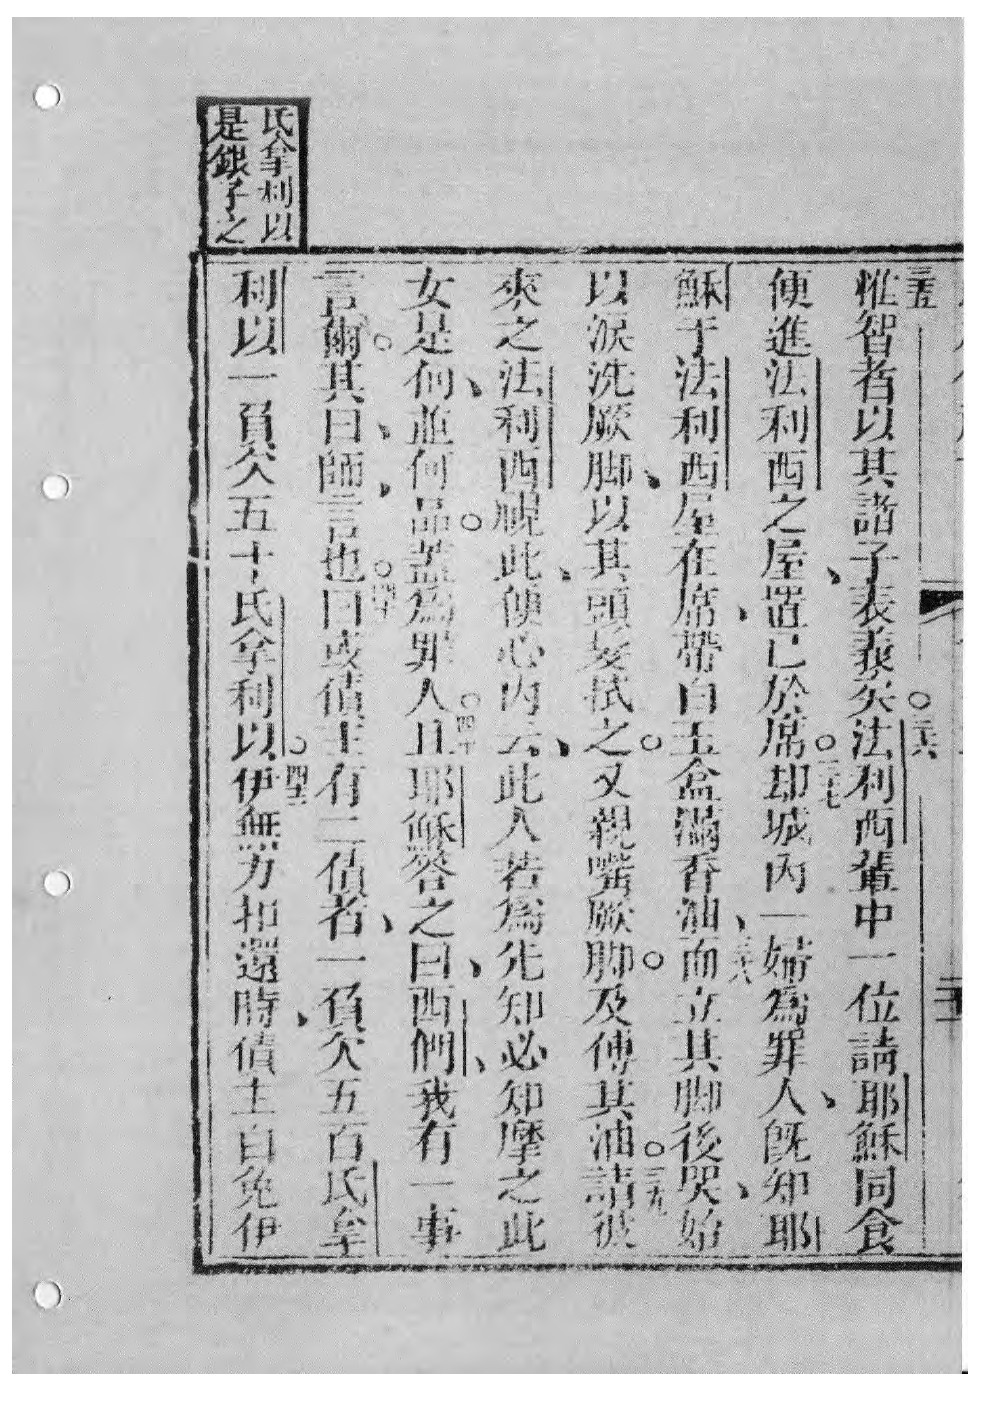 氐拿利以
是銀子之
三五
惟智者以其諸子表義矣○三六法利西輩中一位請耶穌同食
便進法利西之屋、置已於席○三七却城內一婦為罪人、既知耶
穌于法利西屋在席、帶白玉盒滿香油、三八而立其脚後哭、始
以淚洗厥脚、以其頭髮拭之○又親嘴厥脚○及傅其油○三九請彼
來之法利西視此、便心內云、此人若為先知必知摩之此
女是何、並何品○蓋為罪人○四十且耶穌答之曰、西們、我有一事
言爾○其曰、師、言也○四一曰或債主有二債者、一負欠五百氐拿
利以一負欠五十氐拿利以○四二伊無力扣還時、債主白免伊